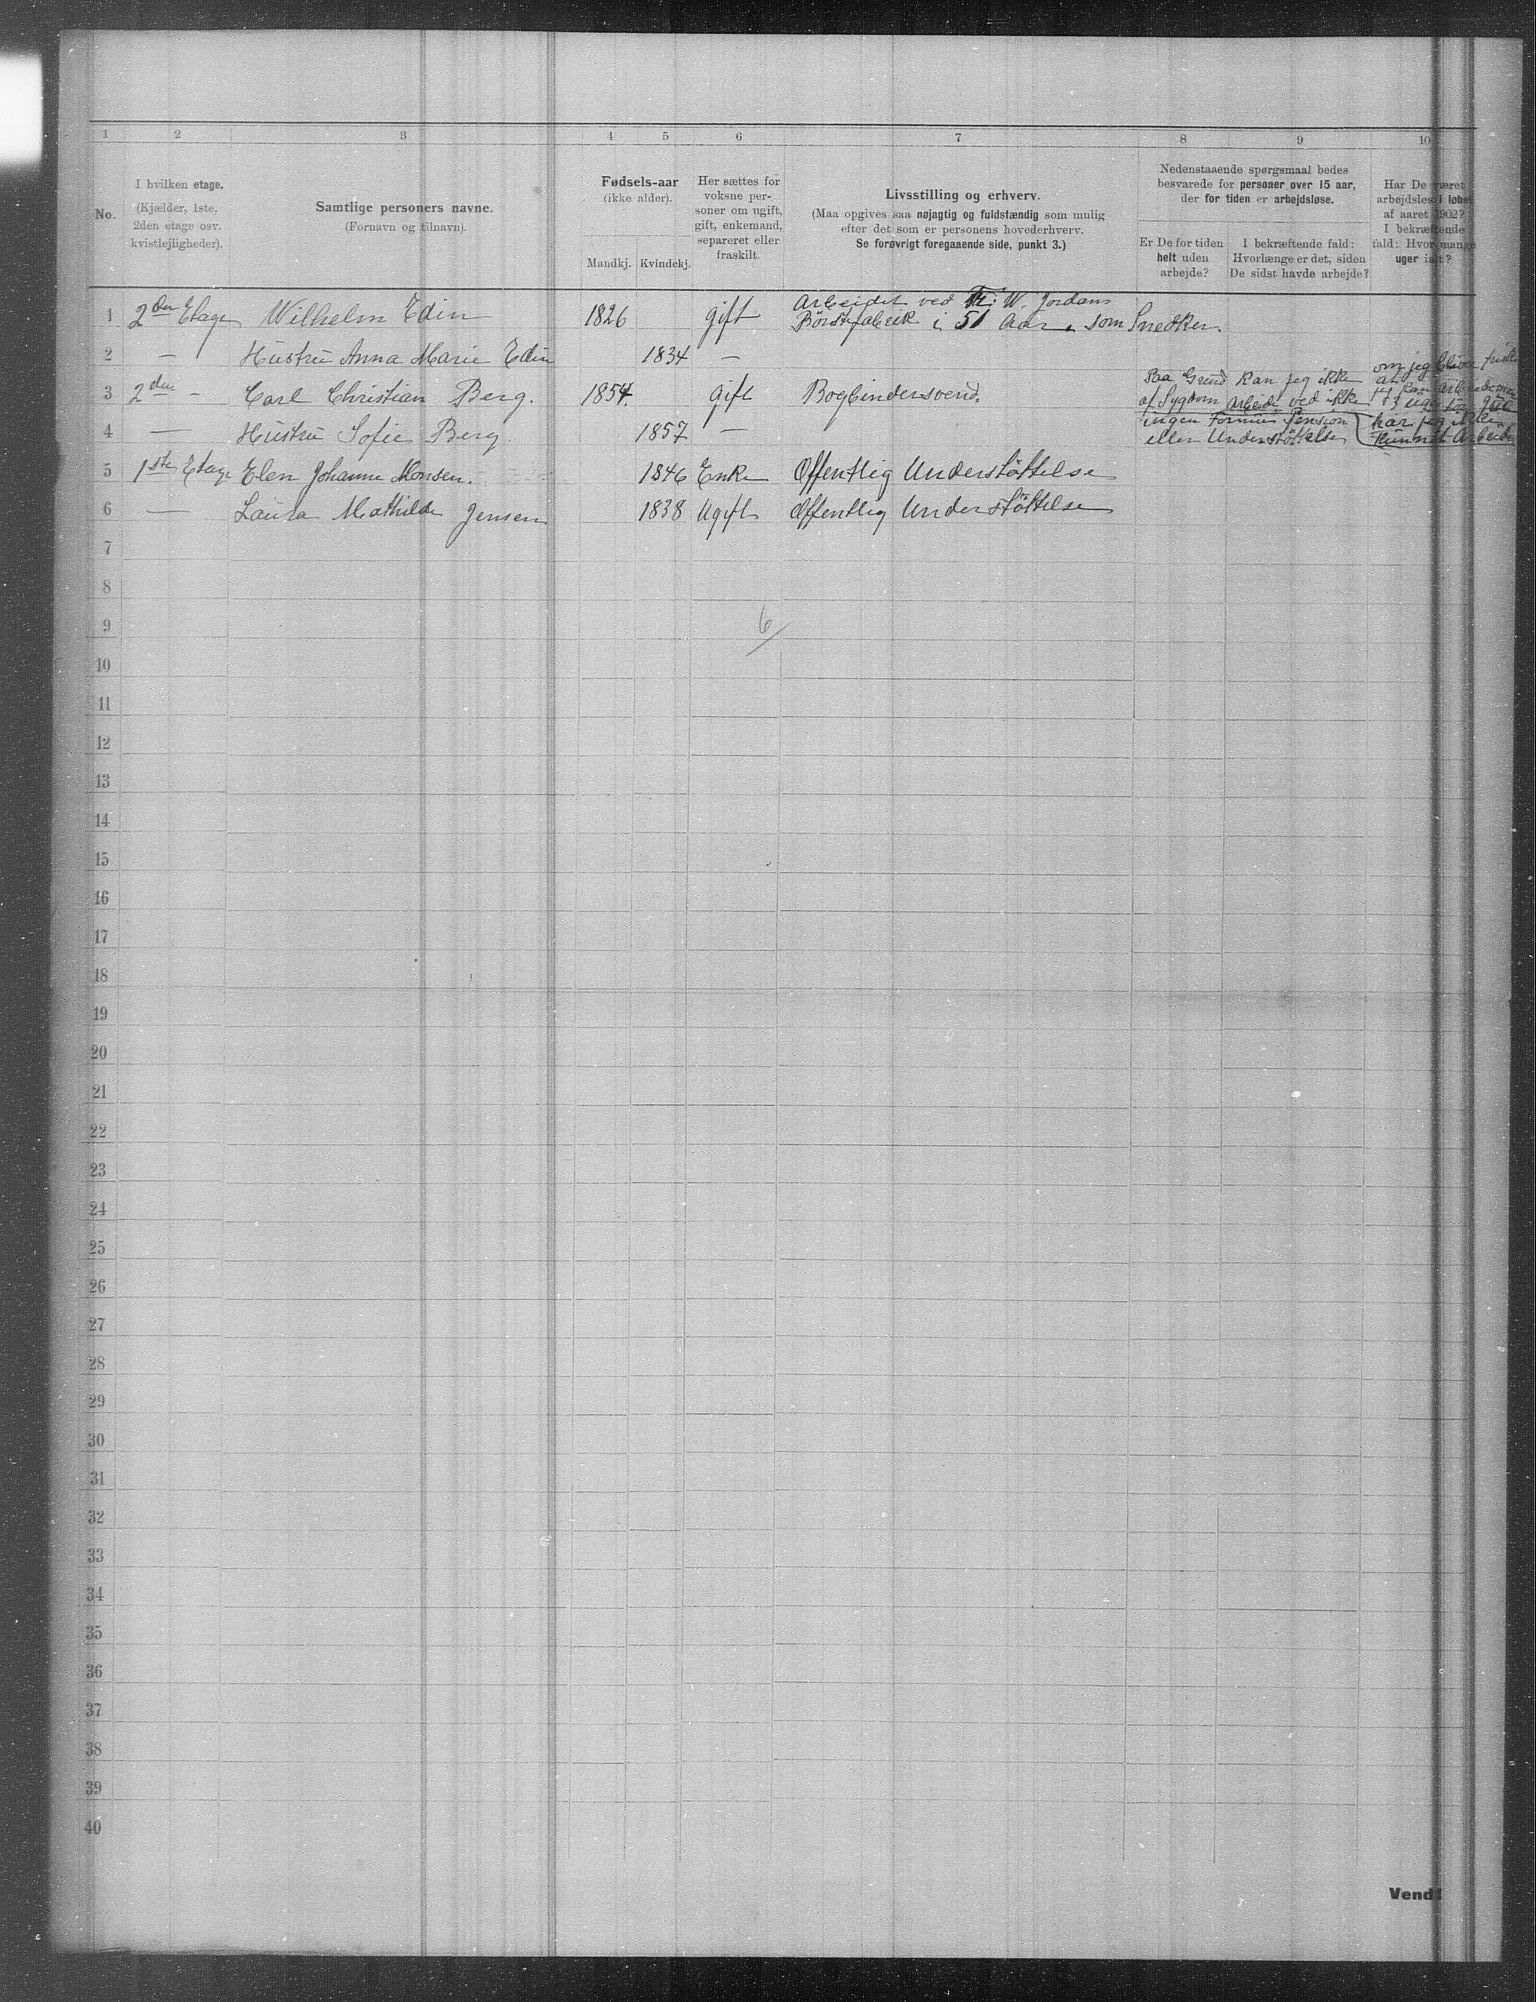 1 2 3 4 5 6 7 8 9 10
No.
I hvilken etage.
(Kjælder, 1ste,
2den etage osv.
kvistlejligheder).
Samtlige personers navne.
(Fornavn og tilnavn).
Fødsels-aar
(ikke alder).
Mandkj. Kvindekj.
Her sættes for
voksne per-
soner om ugift,
gift, enkemand,
separeret eller
fraskilt.
Livsstilling og erhverv.
(Maa opgives saa nøjagtig og fuldstændig som mulig
efter det som er personens hovederhverv.
Se forøvrigt foregaaende side, punkt 3.)
Nedenstaaende spørgsmaal bedes
besvarede for personer over 15 aar,
der for tiden er arbejdsløse.
Er De for tiden
helt uden
arbejde?
I bekræftende fald:
Hvorlænge er det, siden
De sidst havde arbejde?
Har De været
arbejdsløs i løbet
af aaret 1902?
I bekræftende
fald: Hvormange
uger ialt?
1 2den Etage Wilhelm Edin 1826 gift Arbeidet ved Fr. W. Jordans
Börstefabrik i 51 Aar, som Snedker.
2 — Hustru Anna Marie Edin 1834 —
3 2den - Carl Christian Berg. 1854. gift Bogbindersvend.
Paa Grund kan jeg ikke
af Sygdom arbeide ved ikke
ingen Formue Pension
eller Understöttelse
om jeg bliver
har jeg ikke
kunnet Arbeide
4 — Hustru Sofie Berg 1857 —
5 1ste Etage Elen Johanne Monsen. 1846 Enke Offentlig Understöttelse
6 — Laura Mathilde Jensen 1838 Ugift Offentlig Understöttelse
7
8
9
6
10
11
12
13
14
15
16
17
18
19
20
21
22
23
24
25
26
27
28
29
30
31
32
33
34
35
36
37
38
39
40
Vend!